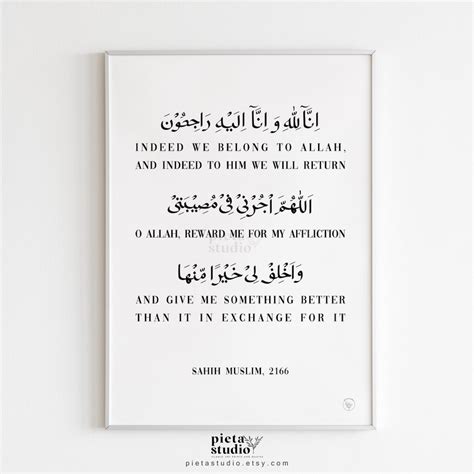 اِنَّا لِلّٰهِ وَ اِنَّاۤ اِلَيْهِ رَاجِعُوْنَ
INDEED WE BELONG TO ALLAH,
AND INDEED TO HIM WE WILL RETURN
اَللّٰهُمَّ اْجُرْنِيْ فِيْ مُصِيْبَتِيْ
O ALLAH, REWARD ME FOR MY AFFLICTION
pieta
studio
وَاَخْلِفْ لِيْ خَيْرًا مِّنْهَا
AND GIVE ME SOMETHING BETTER
THAN IT IN EXCHANGE FOR IT
SAHIH MUSLIM, 2166
pieta
studio
pietastudio.etsy.com